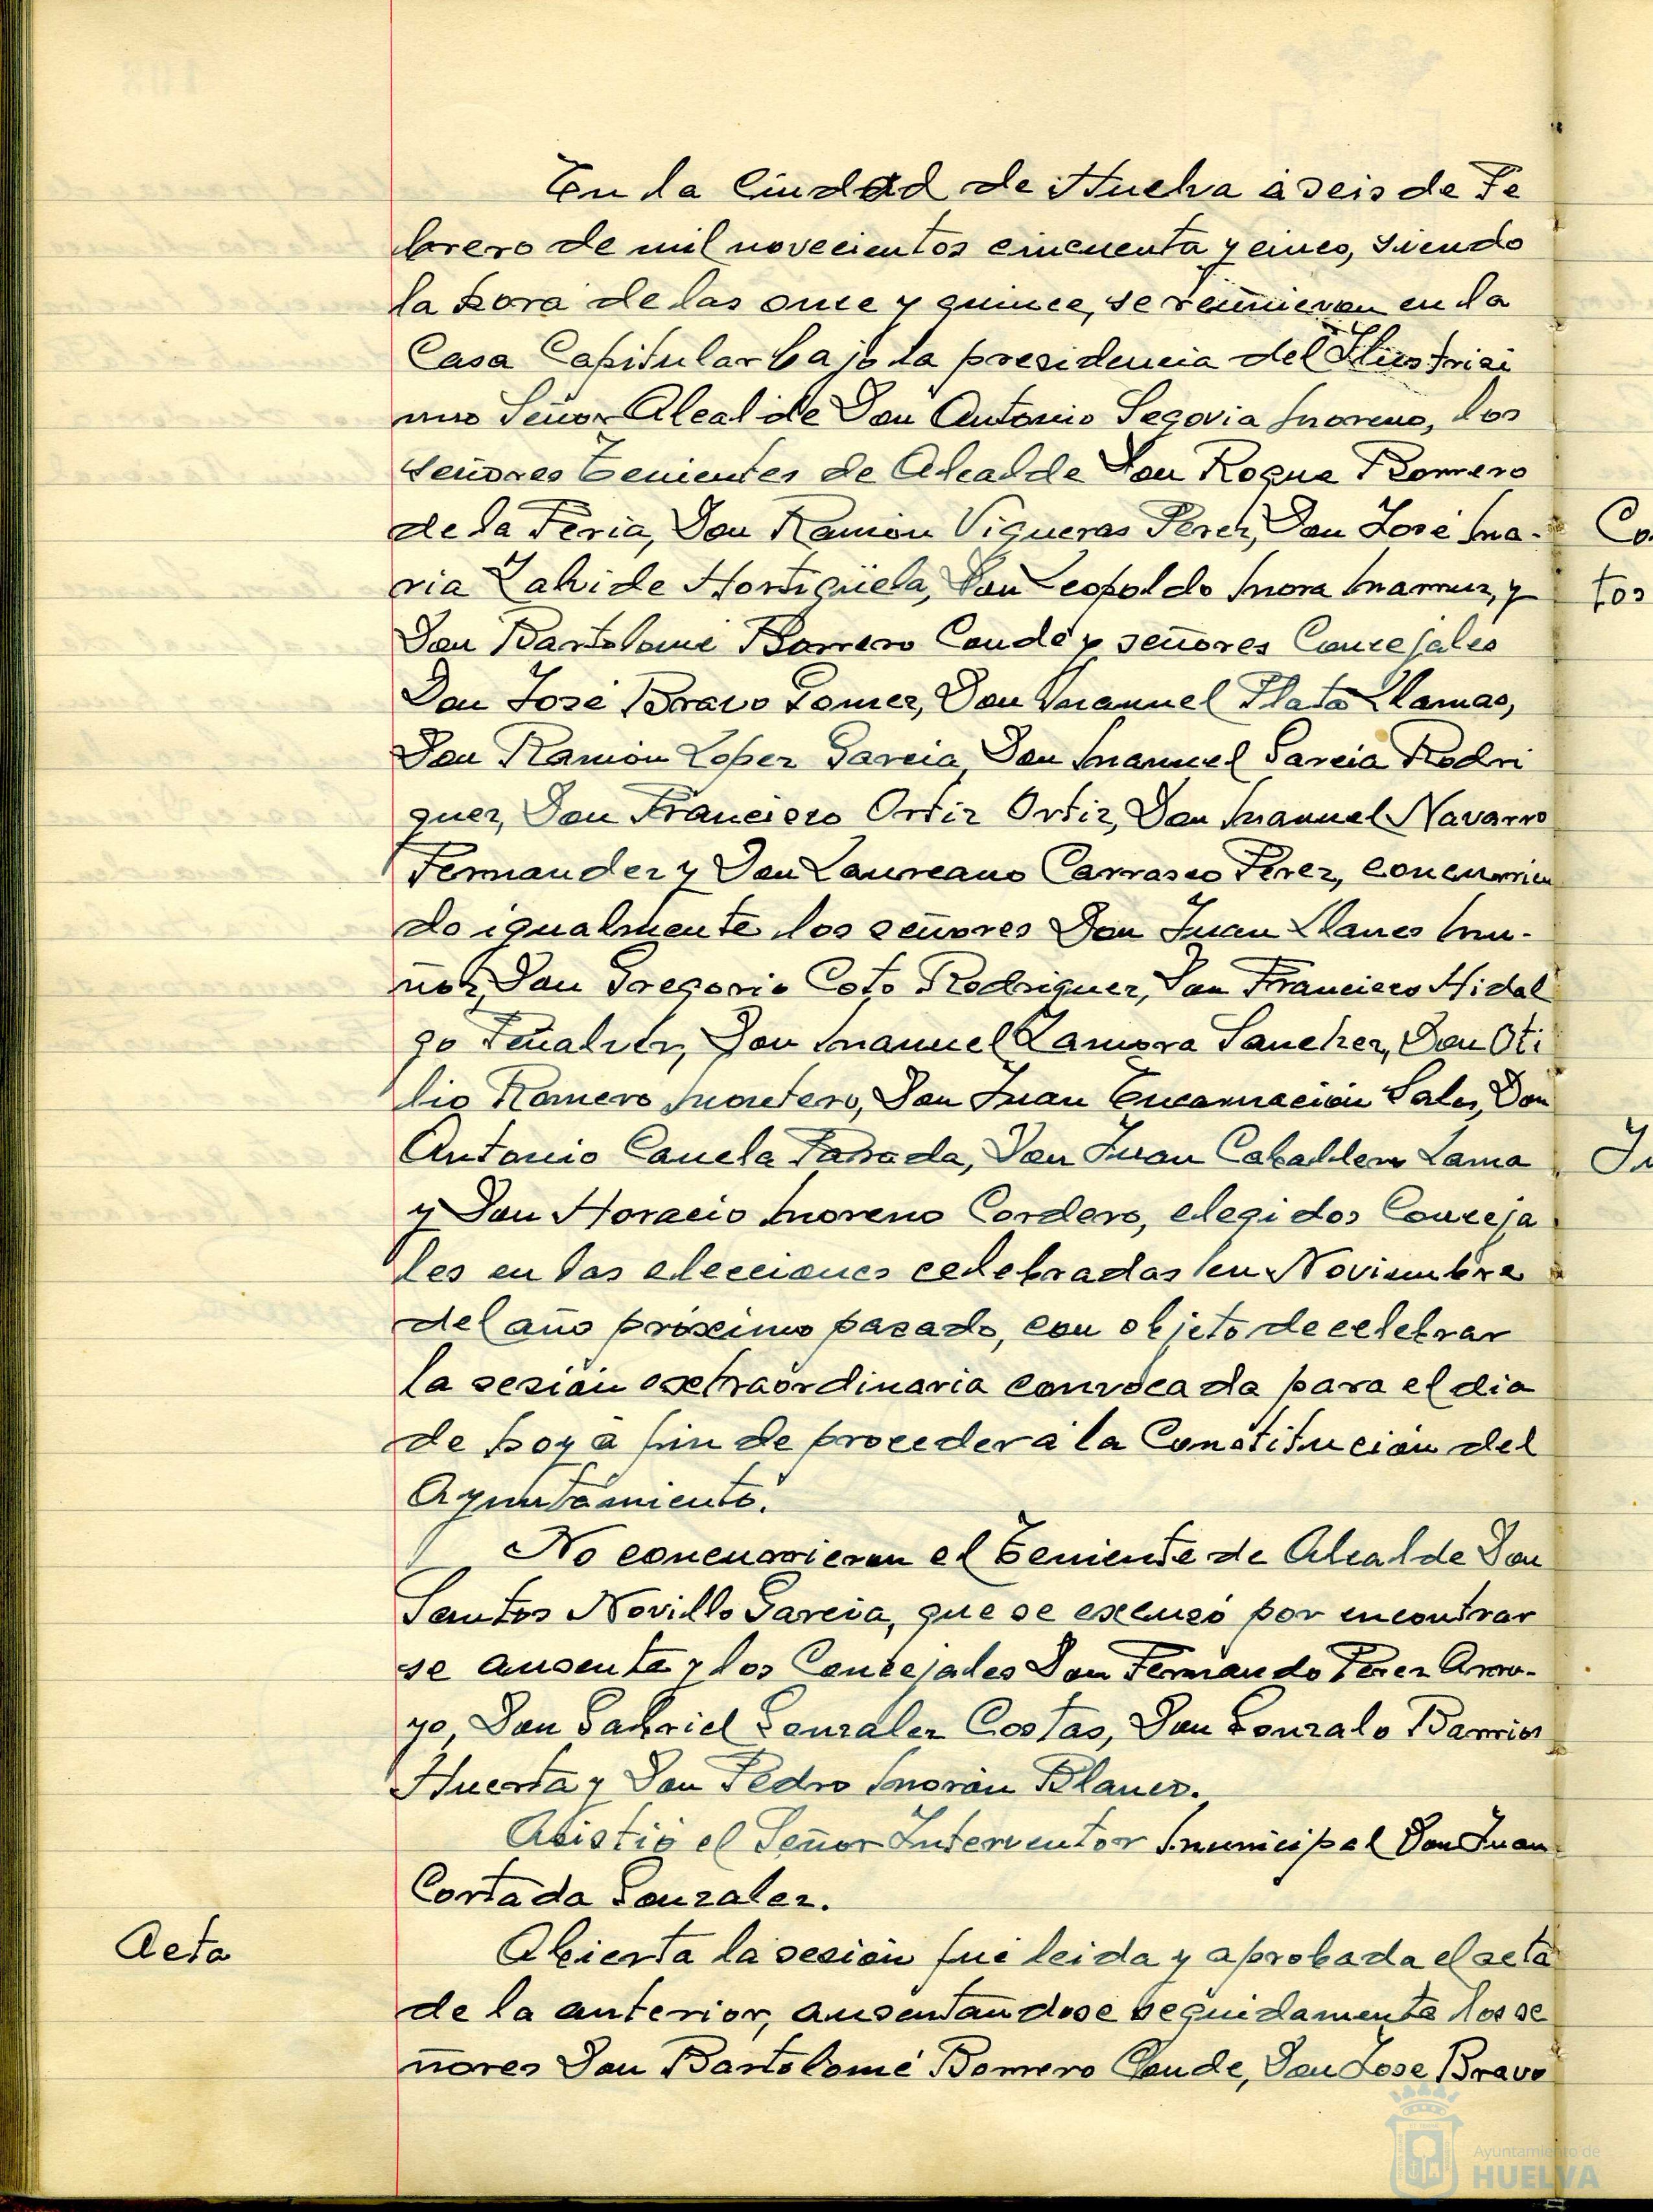 En la Ciudad de Huelva à seis de Fe
brero de mil novecientos cincuenta y cinco, siendo
la hora de las once y quince, se reunieron en la
Casa Capitular bajo la presidencia del Ilustrisi
mo Señor Alcalde Don Antonio Segovia Moreno, los
señores Tenientes de Alcalde Don Roque Romero
de la Feria, Don Ramón Vigueras Perez, Don José Ma-
ria Zalvide Hortigüela, Don Leopoldo Mora y
Don Bartolomé Borrero Conde y señores Concejales
Don José Bravo Gomez, Don Manuel Plata Llamas,
Don Ramón Lopez Garcia, Don Manuel Garcia Rodri
guez, Don Francisco Ortiz Ortiz, Don Manuel Navarro
Fernandez y Don Laureano Carrasco Perez, concurrien
do igualmente los señores Don Juan Llanes Mu-
ñoz, Don Gregorio Coto Rodriguez, Don Francisco Hidal
go Peñalver, Don Manuel Zamora Sanchez, Don Oti
lio Romero Montero, Don Juan Encarnación Sales, Don
Antonio Canela Parada, Don Juan Caballero Lama
y Don Horacio Moreno Cordero, elegidos Conceja
les en las elecciones celebradas en Noviembre
del año próximo pasado, con objeto de celebrar
la sesión extraordinaria convocada para el dia
de hoy à fin de proceder à la Constitución del
Ayuntamiento.
No concurrieron el Teniente de Alcalde Don
Santos Novillo Garcia, que se excusó por encontrar
se ausente y los Concejales Don Fernando Perez Arro-
yo, Don Gabriel Gonzalez Costas, Don Gonzalo Barrios
Huerta y Don Pedro Morón Blanco.
Asistió el Señor Interventor Municipal Don Juan
Cortada Gonzalez.
Acta
Abierta la sesión fué leida y aprobada el acta
de la anterior, ausentandose seguidamente los se
ñores Don Bartolomé Borrero Conde, Don Jose Bravo
Co
tos
Ju
Ayuntamiento de
HUELVA